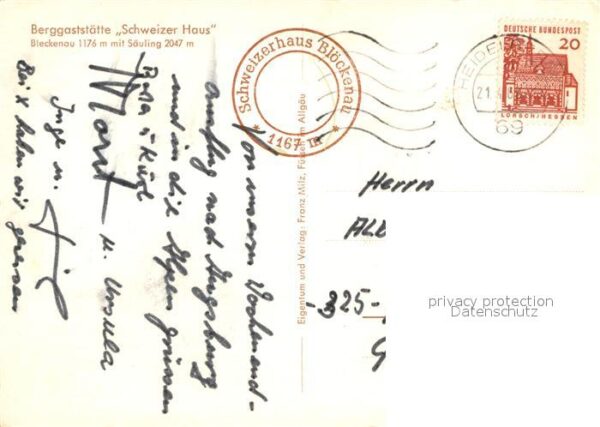 Berggaststätte „Schweizer Haus"
Bleckenau 1176 m mit Säuling 2047 m
Von unserem Wochenend-
ausflug nach Augsburg
und in die Alpen grüssen
u. Ursula
Inge u.
Bei X haben wir gegessen
Schweizerhaus Blöckenau
* 1167 m *
Eigentum und Verlag: Franz Milz, Füssen im Allgäu
DEUTSCHE BUNDESPOST
20
LORSCH/HESSEN
HEIDEL
21.
69
Herrn
-325-
privacy protection
Datenschutz